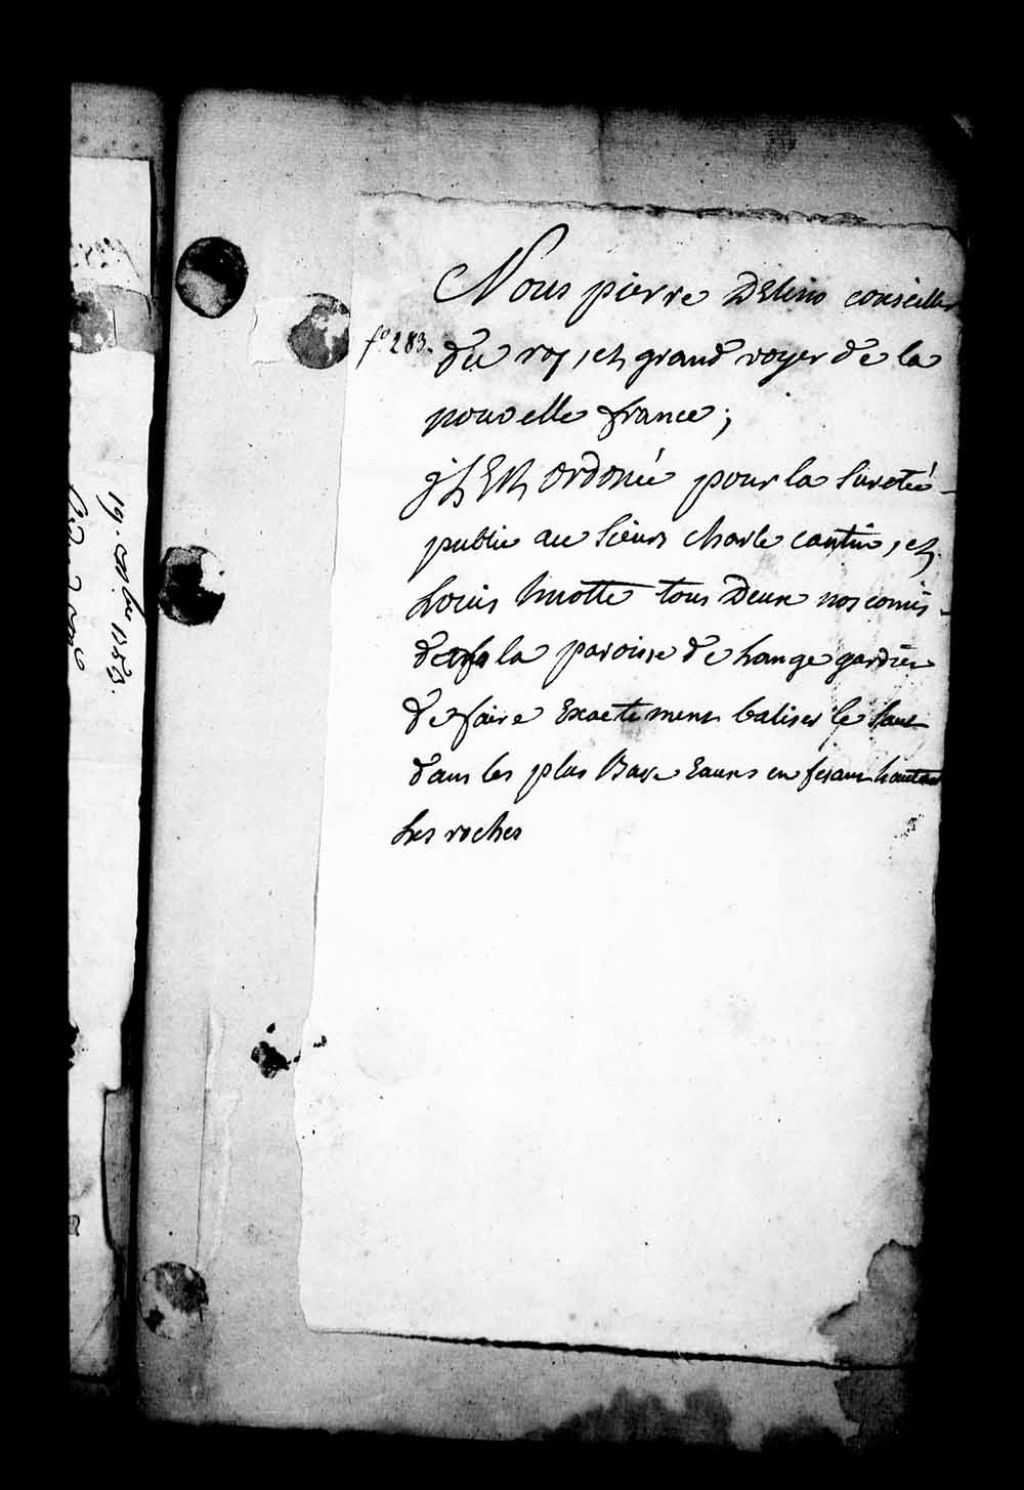 Nous pierre Delino conseiller
f° 283.
du roy, et grand voyer de la
nouvelle france;
il Est ordonée pour la sureté
public au sieurs charle cantin, et
Louis hmotte tous Deux nos comis
dans la paroisse de Lange gardien
de faire Exactement baliser le saut
dans les plus Base Eaux en fesant hauter
Les roches
19. octobre 1753.